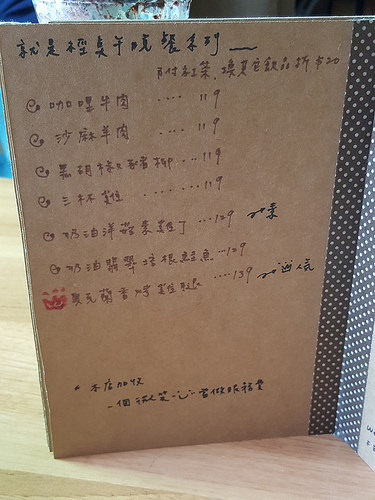 就是經典午晚餐系列
附紅茶 換其它飲品折$20
咖哩牛肉 .... 119
沙麻羊肉 .... 119
黑胡椒豬柳 ... 119
三杯雞 ....... 119
奶油洋菇雞丁 ... 129
奶油翡翠培根鮭魚 ... 129
奧克蘭香烤雞腿 .... 139 人氣
* 本店加收
一個微笑 當做服務費